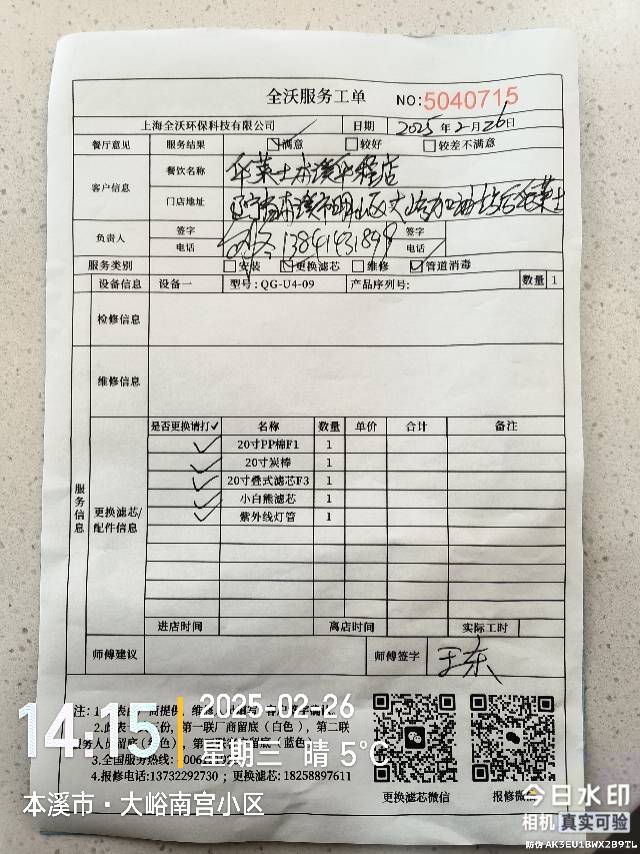 全沃服务工单 NO:5040715
上海全沃环保科技有限公司 日期 2025年2月26日
餐厅意见 服务结果 满意 较好 较差不满意
客户信息 餐饮名称 华莱士本溪华程店
门店地址 辽宁省本溪市明山区大峪加油站后华莱士
负责人 签字 签字
电话 13841431899 电话
服务类别 安装 更换滤芯 维修 管道消毒
设备信息 设备一 型号:QG-U4-09 产品序列号: 数量 1
检修信息
维修信息
服务信息
更换滤芯/配件信息
是否更换请打✓ 名称 数量 单价 合计 备注
✓ 20寸PP棉F1 1
✓ 20寸炭棒 1
✓ 20寸叠式滤芯F3 1
✓ 小白熊滤芯 1
✓ 紫外线灯管 1
进店时间 离店时间 实际工时
师傅建议 师傅签字 王东
注:
第一联厂商留底(白色),第二联
服务人员留底
留底(蓝色)
3.全国服务热线:
4.报修电话:13732292730;更换滤芯:18258897611
更换滤芯微信 报修微信
14:15
2025.02.26
星期三 晴 5℃
本溪市·大峪南宫小区
今日水印
相机 真实可验
防伪 AK3EU1BWX2B9TL